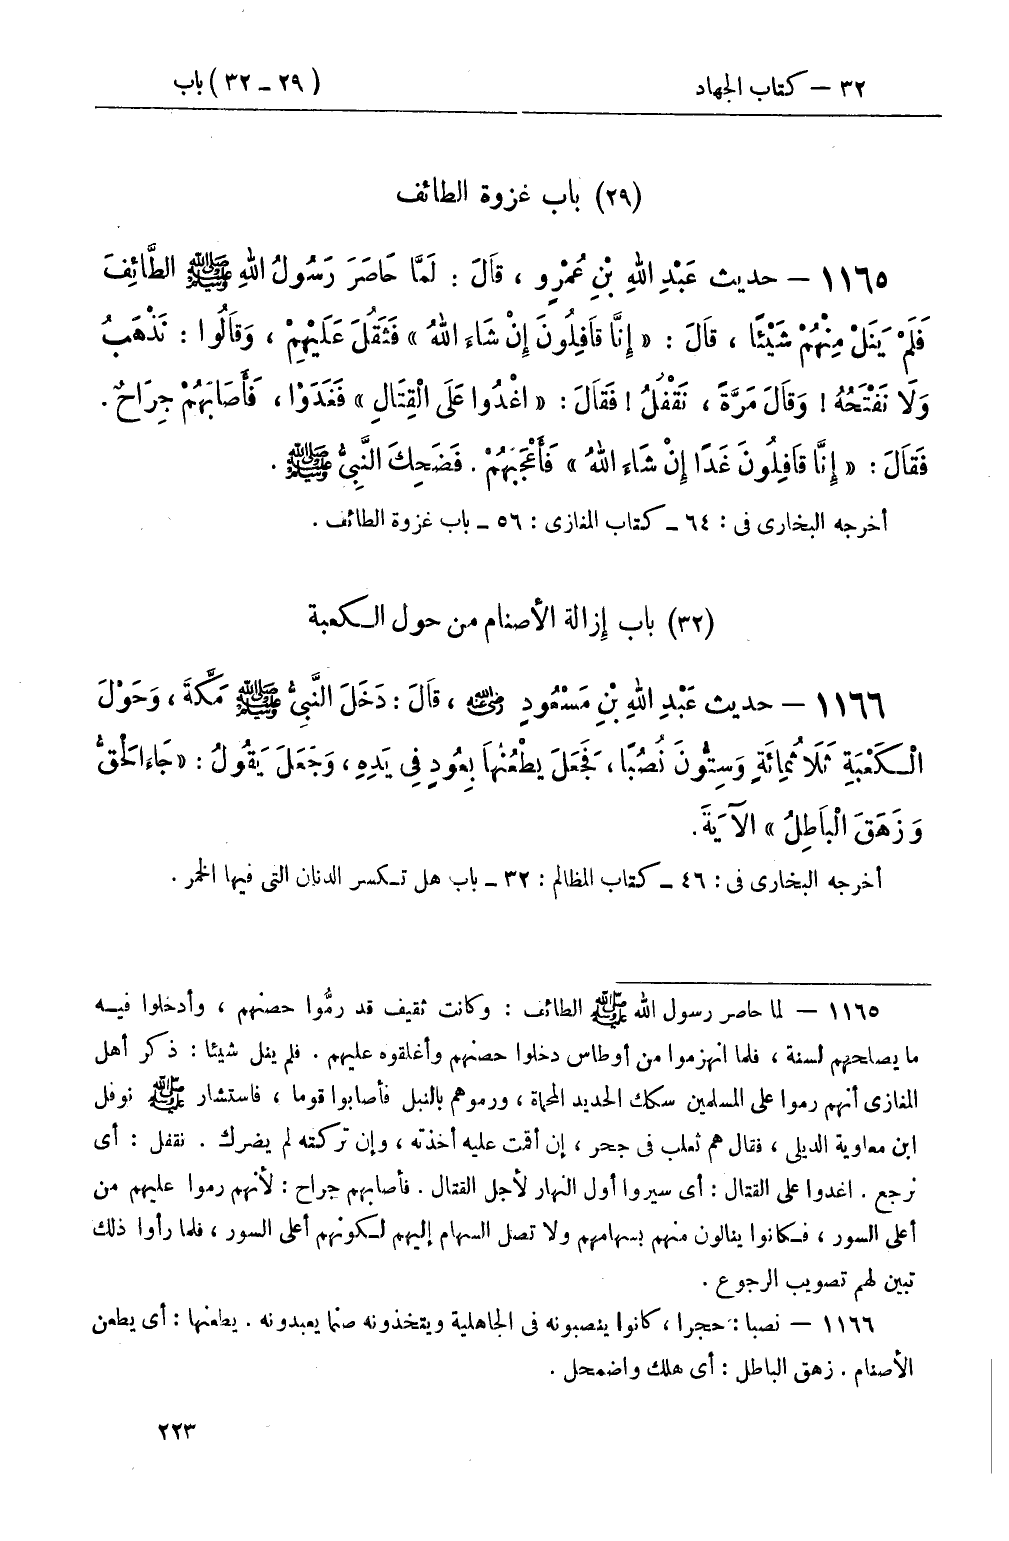 ٣٢ – كتاب الجهاد
(٢٩ – ٣٢) باب
(٢٩) باب غزوة الطائف
١١٦٥ – حديث عَبْدِ اللهِ بْنِ عُمْرٍو ، قَالَ : لَمَّا حَاصَرَ رَسُولُ اللهِ ﷺ الطَّائِفَ
فَلَمْ يَنَلْ مِنْهُمْ شَيْئًا ، قَالَ : « إِنَّا قَافِلُونَ إِنْ شَاءَ اللهُ » فَثَقُلَ عَلَيْهِمْ ، وَقَالُوا : نَذْهَبُ
وَلَا نَفْتَحُهُ ! وَقَالَ مَرَّةً ، نَقْفُلُ ! فَقَالَ : « اغْدُوا عَلَى الْقِتَالِ » فَغَدَوْا ، فَأَصَابَهُمْ جِرَاحٌ .
فَقَالَ : « إِنَّا قَافِلُونَ غَدًا إِنْ شَاءَ اللهُ » فَأَعْجَبَهُمْ . فَضَحِكَ النَّبِيُّ ﷺ .
أخرجه البخارى فى : ٦٤ – كتاب المغازى : ٥٦ – باب غزوة الطائف .
(٣٢) باب إزالة الأصنام من حول الكعبة
١١٦٦ – حديث عَبْدِ اللهِ بْنِ مَسْعُودٍ رضي الله عنه ، قَالَ : دَخَلَ النَّبِيُّ ﷺ مَكَّةَ ، وَحَوْلَ
الْكَعْبَةِ ثَلَاثُمِائَةٍ وَسِتُّونَ نُصُبًا ، فَجَعَلَ يَطْعُنُهَا بِعُودٍ فِى يَدِهِ ، وَجَعَلَ يَقُولُ : « جَاءَ الْحَقُّ
وَزَهَقَ الْبَاطِلُ » الآيَةَ .
أخرجه البخارى فى : ٤٦ – كتاب المظالم : ٣٢ – باب هل تكسر الدنان التى فيها الخمر .
١١٦٥ – لما حاصر رسول الله ﷺ الطائف : وكانت ثقيف قد رمُّوا حصنهم ، وأدخلوا فيه
ما يصلحهم لسنة ، فلما انهزموا من أوطاس دخلوا حصنهم وأغلقوه عليهم . فلم ينل شيئا : ذكر أهل
المغازى أنهم رموا على المسلمين سكك الحديد المحماة ، ورموهم بالنبل فأصابوا قوما ، فاستشار ﷺ نوفل
ابن معاوية الديلى ، فقال هم ثعلب فى جحر ، إن أقمت عليه أخذته ، وإن تركته لم يضرك . نقفل : أى
نرجع . اغدوا على القتال : أى سيروا أول النهار لأجل القتال . فأصابهم جراح : لأنهم رموا عليهم من
أعلى السور ، فكانوا ينالون منهم بسهامهم ولا تصل السهام إليهم لكونهم أعلى السور ، فلما رأوا ذلك
تبين لهم تصويب الرجوع .
١١٦٦ – نصبا : حجرا ، كانوا ينصبونه فى الجاهلية ويتخذونه صنما يعبدونه . يطعنها : أى يطعن
الأصنام . زهق الباطل : أى هلك واضمحل .
٢٢٣